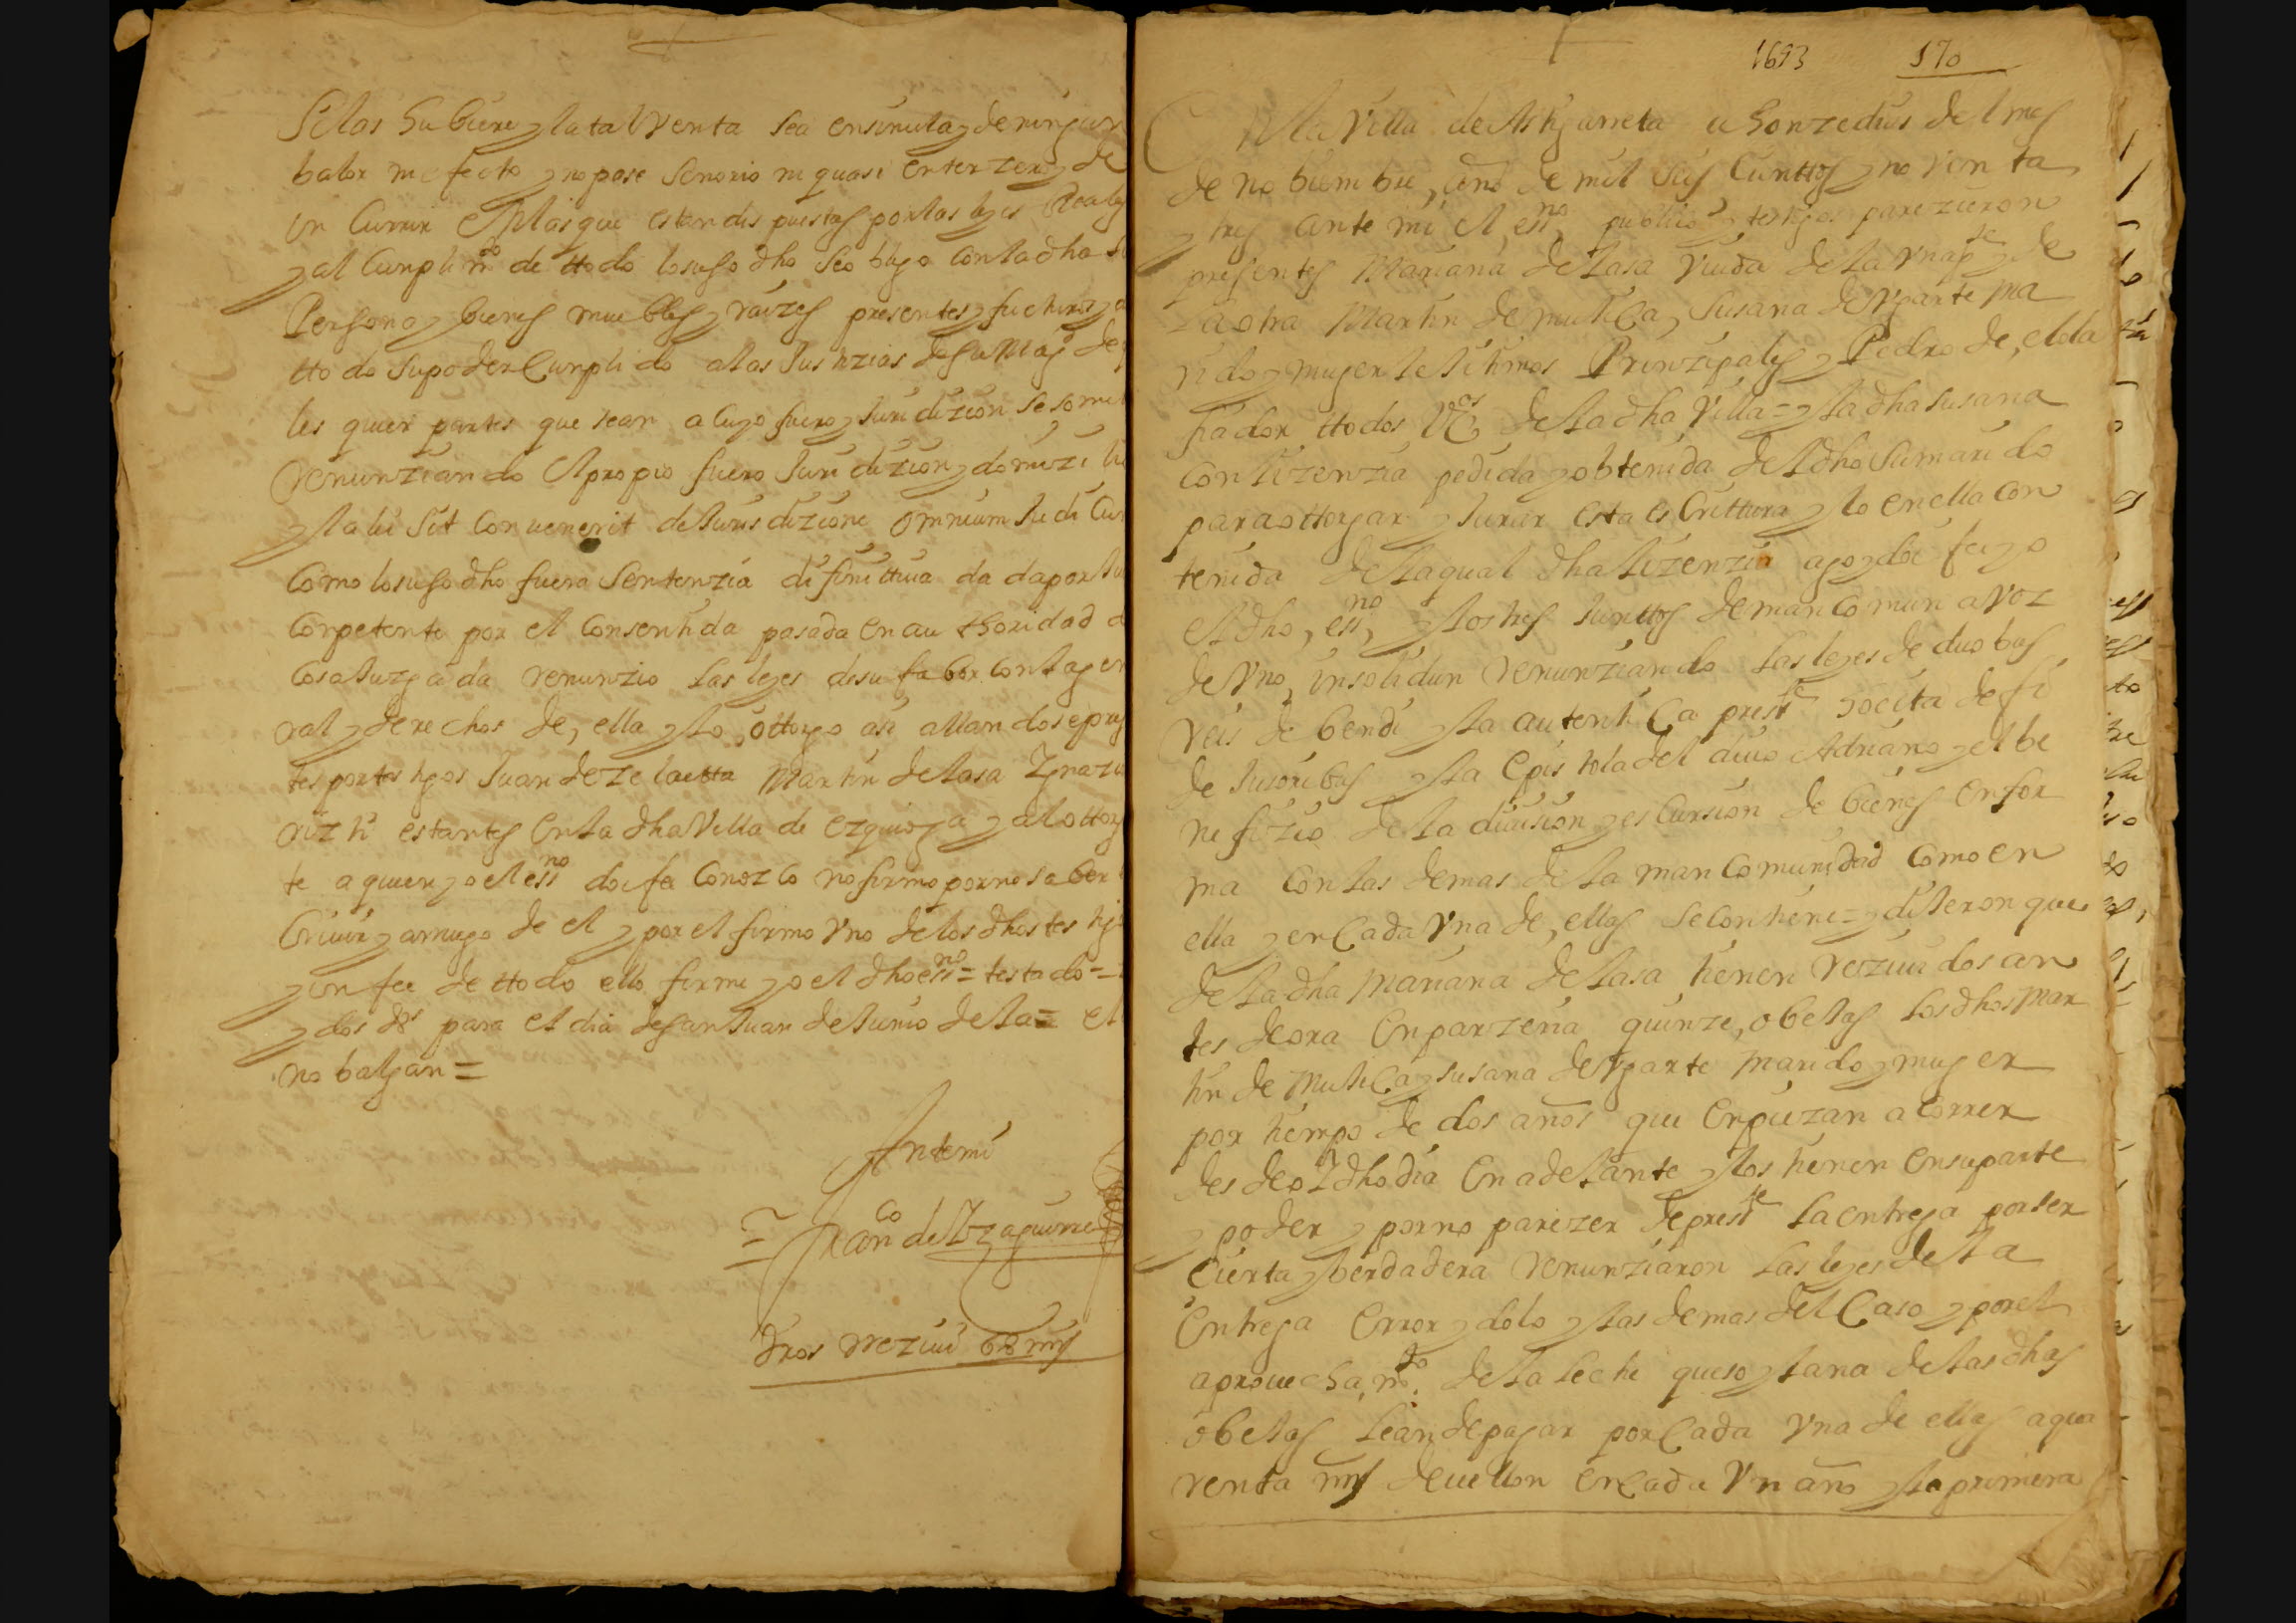 se los hubiere y la tal venta sea en si nula y de ningun
balor ni efecto y no pase señorio ni quasi en terzero y de
yn Currir en las que estan dispuestas por las leyes Reales
y al Cunplimto de ttodo lo suso dho se obligo Con la dha su
Persona y bienes muebles y raizes presentes y futuros y
ttodo su poder Cunplido a las Justizias de su Magd de
les quier partes que sean a Cuyo fuero y Juridizion se somet
renunziando el propio fuero Juridizion y domizi
y la lei sit convenerit de Jurisdizione omnium Judi Cun
Como lo suso dho fuera sentenzia difinittiva dada por Ju
Conpetente por el Consentida pasada en authoridad d
Cosa Juzgada renunzio las leyes de su fabor con la gen
ral y derechos de, ella y lo ottorgo asi allandose pres
tes por testigos Juan de zelaetta Martin de lasa Ygnazio
estantes en la dha Villa de ezquioga y al ottorg
te a quien yo el essno doi fee Conozco no firmo por no saber
Crivir y a rruego de el y por el firmo Vno de los dhos testig
y en fee de ttodo ello firme yo el dho essno = testado =
y dos ds para el dia de san Juan de Junio de la = el
no balgan =
Ante mi
= Franco de Yzaguirre
dros rrezivi 68 mrs
1693 170
En la Villa de Astigarreta a honze dias del mes
de nobiembre, año de mil seis Cienttos y noventa
y tres ante mi el essno publico y testigos parezieron
presentes Mariana de lasa viuda de la vna pte y de
la otra Martin de mujica y Susana de Vgarte ma
rido y muger lejitimos Prinzipales y Pedro de, elola
fiador ttodos vos de la dha Villa = y la dha susana
con lizenzia pedida y obtenida del dho su marido
para ottorgar y Jurar esta esCrittura y lo en ella con
tenida de la qual dha lizenzia ago y doi fee yo
el dho, essno, y los tres Junttos de man Comun a voz
de vno, insolidun renunziando las leyes de duobus
reis de bendi y la autentiCa preste hocita de fi
de Jusoribus y la epistola del divo Adriano y el be
nefizio de la division y esCursion de bienes en for
ma con las demas de la manComunidad Como en
ella y en Cada vna de, ellas se Contiene = y dijeron que
de la dha Mariana de lasa tienen rezividos an
tes de ora En parzeria quinze, obejas los dhos mar
tin de MujiCa y susana de Vgarte marido y muger
por tiempo de dos años que Enpiezan a Correr
desde oi dho dia En adelante y los tienen en su parte
y poder y por no parezer de preste la entrega por ser
Cierta y berdadera renunziaron las leyes de la
Entrega Error y dolo y las demas del Caso y por el
aprovechamto de la leche queso y lana de las dhas
obejas le an de pagar por Cada vna de ellas a qua
renta mrs de vellon en Cada Vn año y la primera